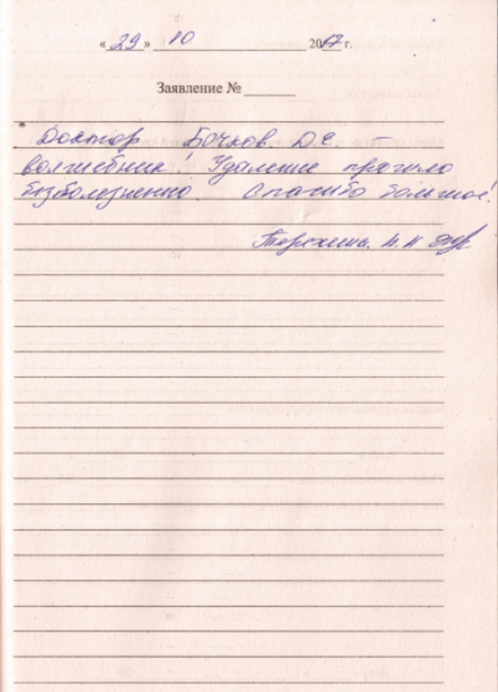 « 29 » 10 2017 г.
Заявление № ______
Доктор Бочков Д.Е. –
волшебник! Удаление прошло
безболезненно Спасибо большое!
Н. Н